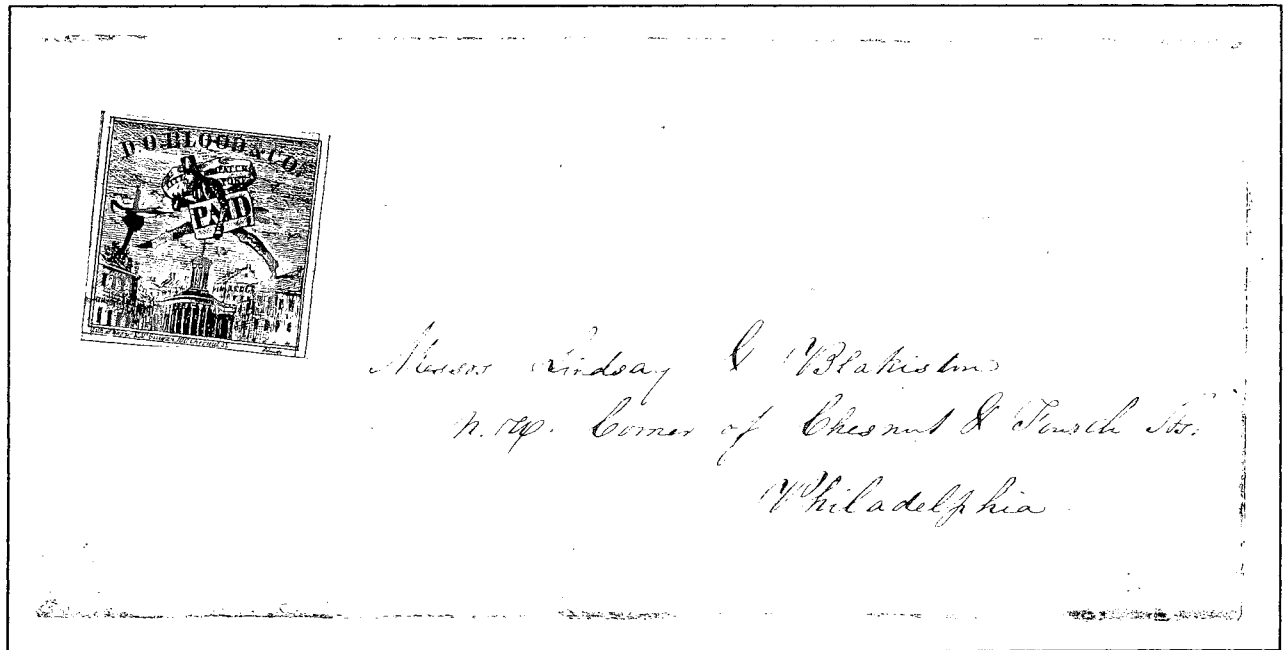 D.O. BLOOD & CO.
PAID
Messrs Lindsay & Blakiston
N.W. Corner of Chesnut & Fourth Sts.
Philadelphia